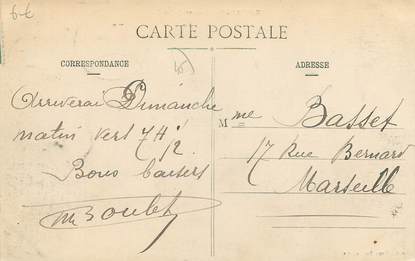 6-E
CARTE POSTALE
CORRESPONDANCE
ADRESSE
Arriverai Dimanche
matin vers 7 H 1/2
Bons baisers
M Boulet
Mme Basset
17 Rue Bernard
Marseille